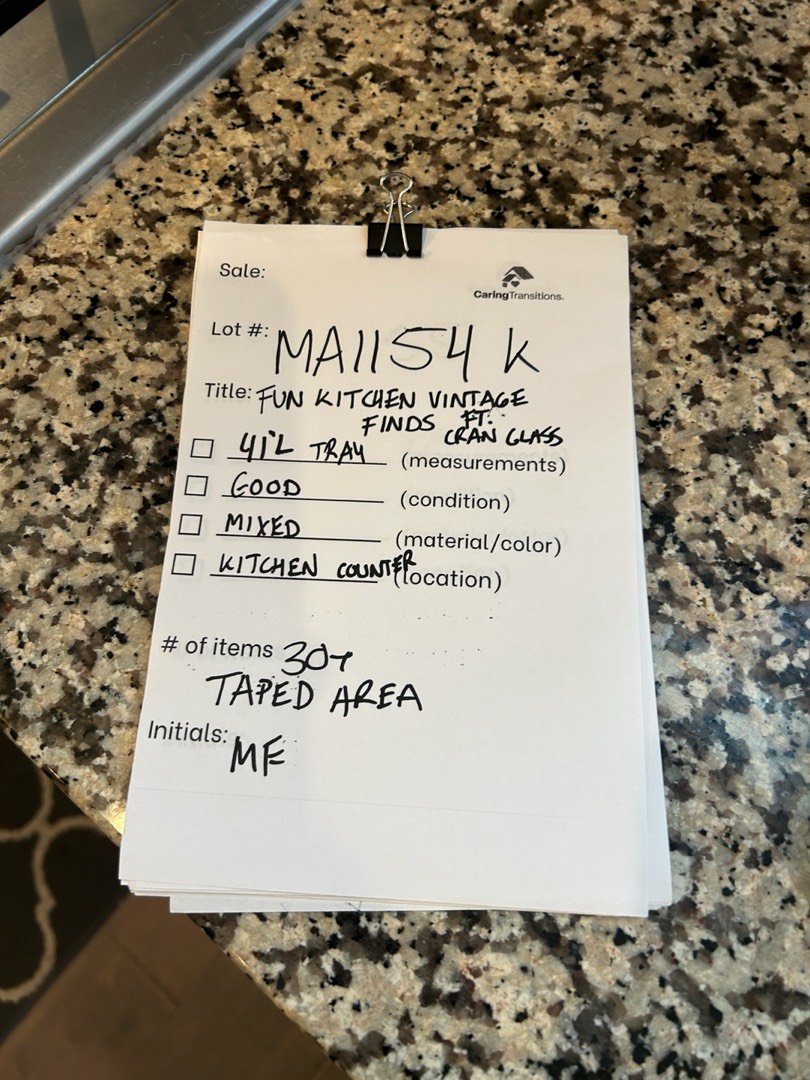 Sale:
CaringTransitions.
Lot #: MA1154 K
Title: FUN KITCHEN VINTAGE
FINDS FT.
CRAN GLASS
41"L TRAY (measurements)
GOOD (condition)
MIXED (material/color)
KITCHEN COUNTER (location)
# of items 30+
TAPED AREA
Initials: MF